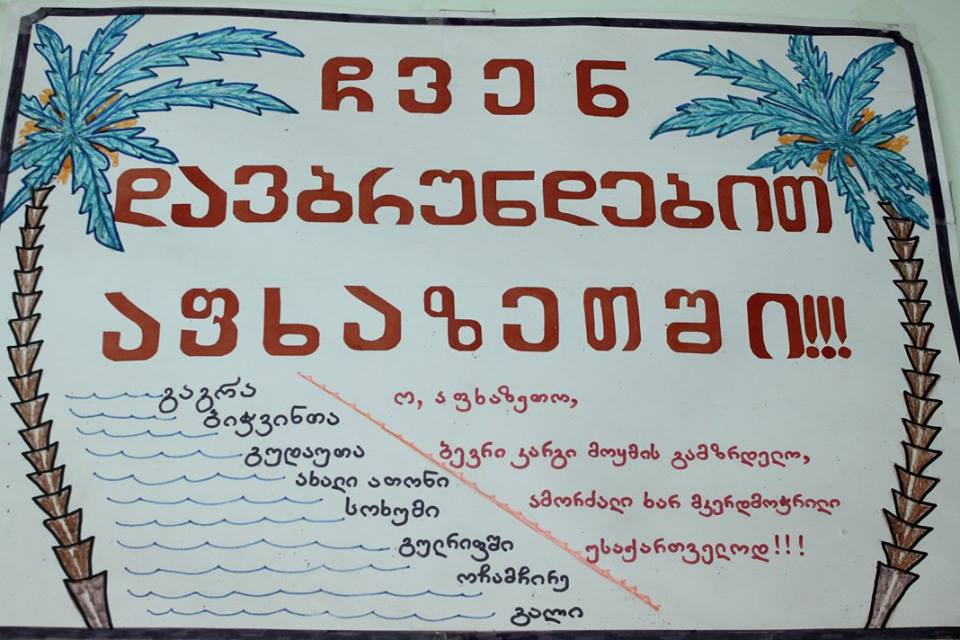 ჩვენ
დავბრუნდებით
აფხაზეთში!!!
გაგრა
ბიჭვინთა
გუდაუთა
ახალი ათონი
სოხუმი
გულრიფში
ოჩამჩირე
გალი
ო, აფხაზეთო,
ბევრი კარგი მოყმის გამზრდელო,
ამორძალი ხარ მკერდმოჭრილი
უსაქართველოდ!!!